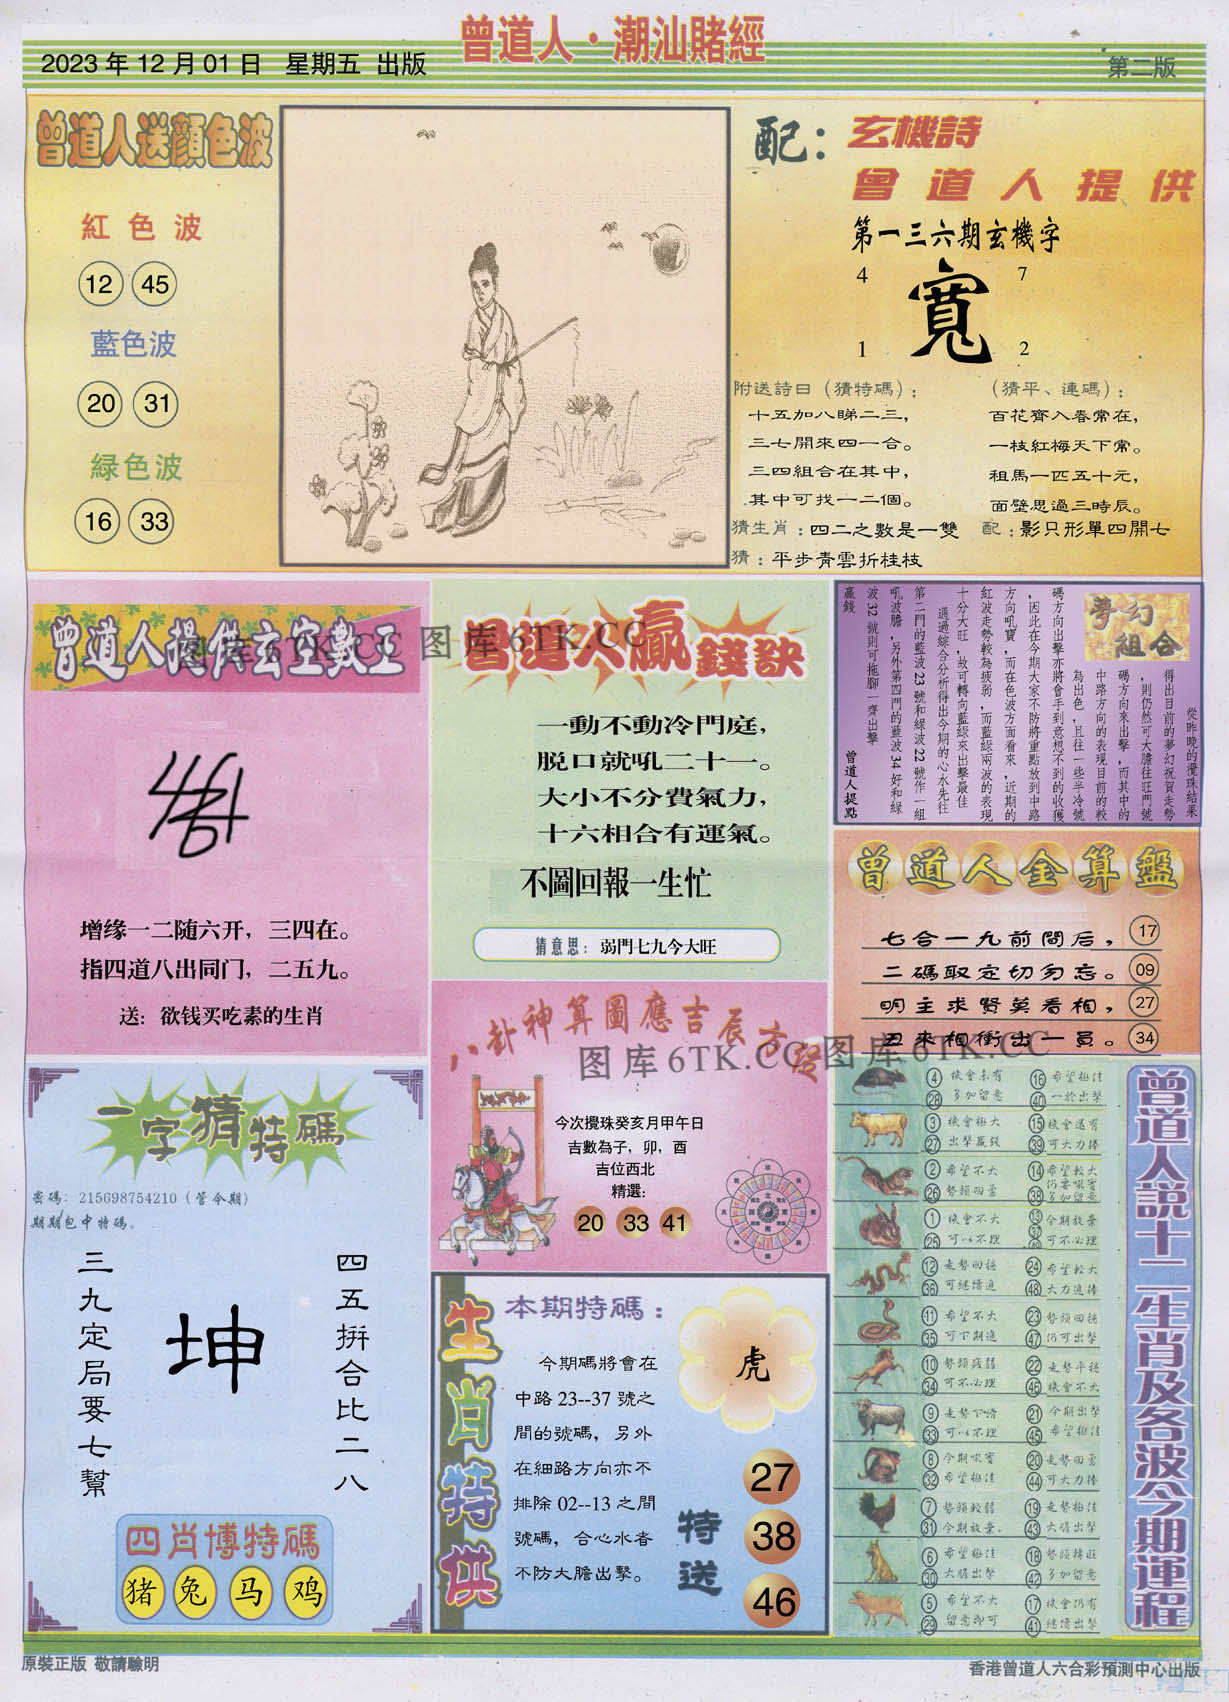 曾道人·潮汕賭經
2023年12月01日 星期五 出版
第二版
曾道人送顔色波
紅色波
12 45
藍色波
20 31
緑色波
16 33
配：
玄機詩
曾道人提供
第一三六期玄機字
4 7
寬
1 2
附送詩曰（猜特碼）：
十五加八睇二三，
三七開來四一合。
三四組合在其中，
其中可找一二個。
（猜平、連碼）：
百花齊入春常在，
一枝紅梅天下常。
租馬一匹五十元，
面壁思過三時辰。
猜生肖：四二之數是一雙
配：影只形單四開七
猜：平步青雲折桂枝
曾道人提供玄空數王
增缘一二随六开，三四在。
指四道八出同门，二五九。
送：欲钱买吃素的生肖
曾道人贏錢訣
一動不動冷門庭，
脱口就吼二十一。
大小不分費氣力，
十六相合有運氣。
不圖回報一生忙
猜意思：弱門七九今大旺
夢幻組合
從昨晚的攪珠結果
得出目前的夢幻祝賀走勢
，則仍然可大膽往旺門號
碼方向來出擊，而其中的
中路方向的表現目前的較
為出色，且往一些半冷號
碼方向出擊亦將會手到意想不到的收獲
，因此在今期大家不防將重點放到中路
方向吼寶，而在色波方面看來，近期的
紅波走勢較為疲弱，而藍綠兩波的表現
十分大旺，故可轉向藍綠來出擊最佳
通過綜合分析得出今期的心水先往
第二門的藍波23號和綠波22號作一組
吼波膽，另外第四門的藍波34好和綠
波32號則可拖腳一齊出擊
贏錢
曾道人提點
曾道人金算盤
七合一九前閂后， 17
二碼取定切勿忘。 09
明主求賢莫看相， 27
丑來相衝出一員。 34
八卦神算圖應吉辰方
今次攪珠癸亥月甲午日
吉數為子，卯，酉
吉位西北
精選：
20 33 41
一字猜特碼
密碼：215698754210（管令期）
期期包中特碼。
四五拼合比二八
坤
三九定局要七幫
四肖博特碼
猪 兔 马 鸡
生肖特供
本期特碼：
今期碼將會在
中路23--37號之
間的號碼，另外
在細路方向亦不
排除02--13之間
號碼，合心水者
不防大膽出擊。
虎
特送
27
38
46
曾道人説十二生肖及各波今期運程
④ 機會未有 ⑯ 希望極佳
㉘ 多加留意 ㊵ 一於出擊
③ 機會極大 ⑮ 機會還有
㉗ 出擊贏錢 ㊴ 可大力捧
② 希望不大 ⑭ 希望較大
㉖ 勢頭回勇 ㊳ 仍要吼實 多加留意
① 機會不大 ⑬ 今期放棄
㉕ 可以不理 ㊲ ㊾ 可不必理
⑫ 走勢回穩 ㉔ 希望較大
㊱ 可繼續進 ㊽ 大力進捧
⑪ 希望不大 ㉓ 勢頭回穩
㉟ 可下期進 ㊼ 仍可出擊
⑩ 勢頭疲弱 ㉒ 走勢平穩
㉞ 可不必理 ㊻ 機會不大
⑨ 走勢下滑 ㉑ 今期出擊
㉝ 可以不理 ㊺ 希望極佳
⑧ 今期吼實 ⑳ 走勢回勇
㉜ 希望極佳 ㊹ 可大力捧
⑦ 勢頭較弱 ⑲ 走勢極佳
㉛ 今期放棄. ㊸ 大膽出擊
⑥ 希望極佳 ⑱ 勢頭轉旺
㉚ 大膽出擊 ㊷ 多加留意
⑤ 希望不大 ⑰ 機會仍有
㉙ 留意即可 ㊶ 繼續出擊
图库6TK.CC 图库6TK.CC
图库6TK.CC 图库6TK.CC
原裝正版 敬請驗明
香港曾道人六合彩預測中心出版